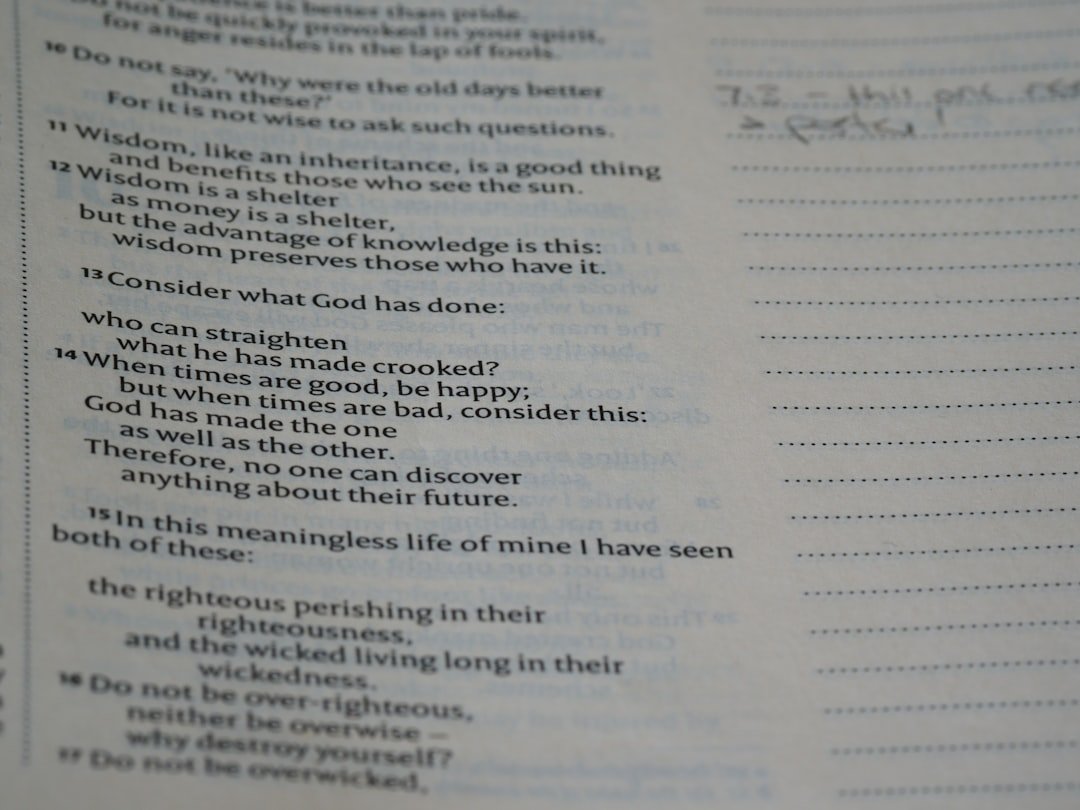 is better than pride.
not be quickly provoked in your spirit,
for anger resides in the lap of fools.
10 Do not say, ‘Why were the old days better
than these?’
For it is not wise to ask such questions.
11 Wisdom, like an inheritance, is a good thing
and benefits those who see the sun.
12 Wisdom is a shelter
as money is a shelter,
but the advantage of knowledge is this:
wisdom preserves those who have it.
13 Consider what God has done:
who can straighten
what he has made crooked?
14 When times are good, be happy;
but when times are bad, consider this:
God has made the one
as well as the other.
Therefore, no one can discover
anything about their future.
15 In this meaningless life of mine I have seen
both of these:
the righteous perishing in their
righteousness,
and the wicked living long in their
wickedness.
16 Do not be over-righteous,
neither be overwise –
why destroy yourself?
17 Do not be overwicked,
7:2 – this